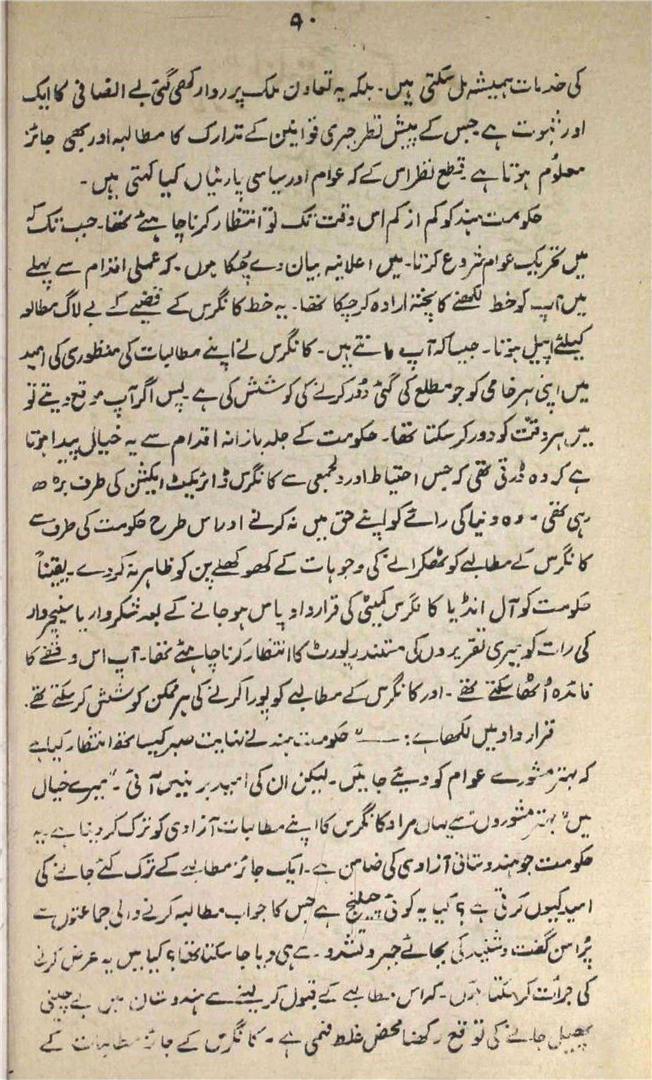 ۹۰
کی خدمات ہمیشہ مل سکتی ہیں۔ بلکہ یہ تعاون ملک پر روا رکھی گئی بے انصافی کا ایک
اور ثبوت ہے جس کے پیش نظر جبری قوانین کے تدارک کا مطالبہ اور بھی جائز
معلوم ہوتا ہے قطع نظر اس کے کہ عوام اور سیاسی پارٹیاں کیا کہتی ہیں۔
حکومت ہند کو کم از کم اس وقت تک تو انتظار کرنا چاہئے تھا۔ جب تک کہ
میں تحریک عوام شروع کرتا۔ میں اعلانیہ بیان دے چکا ہوں۔ کہ عملی اقدام سے پہلے
میں آپ کو خط لکھنے کا پختہ ارادہ کر چکا تھا۔ یہ خط کانگرس کے قضیے کے بے لاگ مطالعہ
کیلئے اپیل ہوتا۔ جیسا کہ آپ مانتے ہیں۔ کانگرس نے اپنے مطالبات کی منظوری کی امید
میں اپنی ہر خامی کو جو مطلع کی گئی دُور کرنے کی کوشش کی ہے۔ پس اگر آپ موقع دیتے تو
میں ہر دقّت کو دور کر سکتا تھا۔ حکومت کے جلد بازانہ اقدام سے یہ خیال پیدا ہوتا
ہے کہ وہ ڈرتی تھی کہ جس احتیاط اور دلجمعی سے کانگرس ڈائریکٹ ایکشن کی طرف بڑھ
رہی تھی۔ وہ دنیا کی رائے کو اپنے حق میں نہ کرلے اور اس طرح حکومت کی طرف سے
کانگرس کے مطالبے کو ٹھکرانے کی وجوہات کے کھوکھلے پن کو ظاہر نہ کر دے۔ یقیناً
حکومت کو آل انڈیا کانگرس کمیٹی کی قرارداد پاس ہو جانے کے بعد شکروار یا سنیچروار
کی رات کو میری تقریروں کی مستند رپورٹ کا انتظار کرنا چاہئے تھا۔ آپ اس وقفے کا
فائدہ اُٹھا سکتے تھے۔ اور کانگرس کے مطالبے کو پورا کرنے کی ہر ممکن کوشش کر سکتے تھے۔
قرارداد میں لکھا ہے:۔ ”حکومت ہند نے نہایت صبر کیساتھ انتظار کیا ہے
کہ بہتر مشورے عوام کو دیئے جائیں۔ لیکن ان کی امید بر نہیں آئی۔“ میرے خیال
میں ”بہتر مشوروں“ سے یہاں مراد کانگرس کا اپنے مطالبات آزادی کو ترک کر دینا ہے۔ یہ
حکومت جو ہندوستانی آزادی کی ضامن ہے۔ ایک جائز مطالبے کے ترک کئے جانے کی
امید کیوں کرتی ہے؟ کیا یہ کوئی چیلنج ہے جس کا جواب مطالبہ کرنے والی جماعتوں سے
پُرامن گفت و شنید کی بجائے جبر و تشدد سے ہی دیا جا سکتا تھا؟ کیا میں یہ عرض کرنے
کی جرأت کر سکتا ہوں۔ کہ اس مطالبے کے قبول کر لینے سے ہندوستان میں بے چینی
پھیل جانے کی توقع رکھنا محض غلط فہمی ہے۔ کانگرس کے جائز مطالبات کے